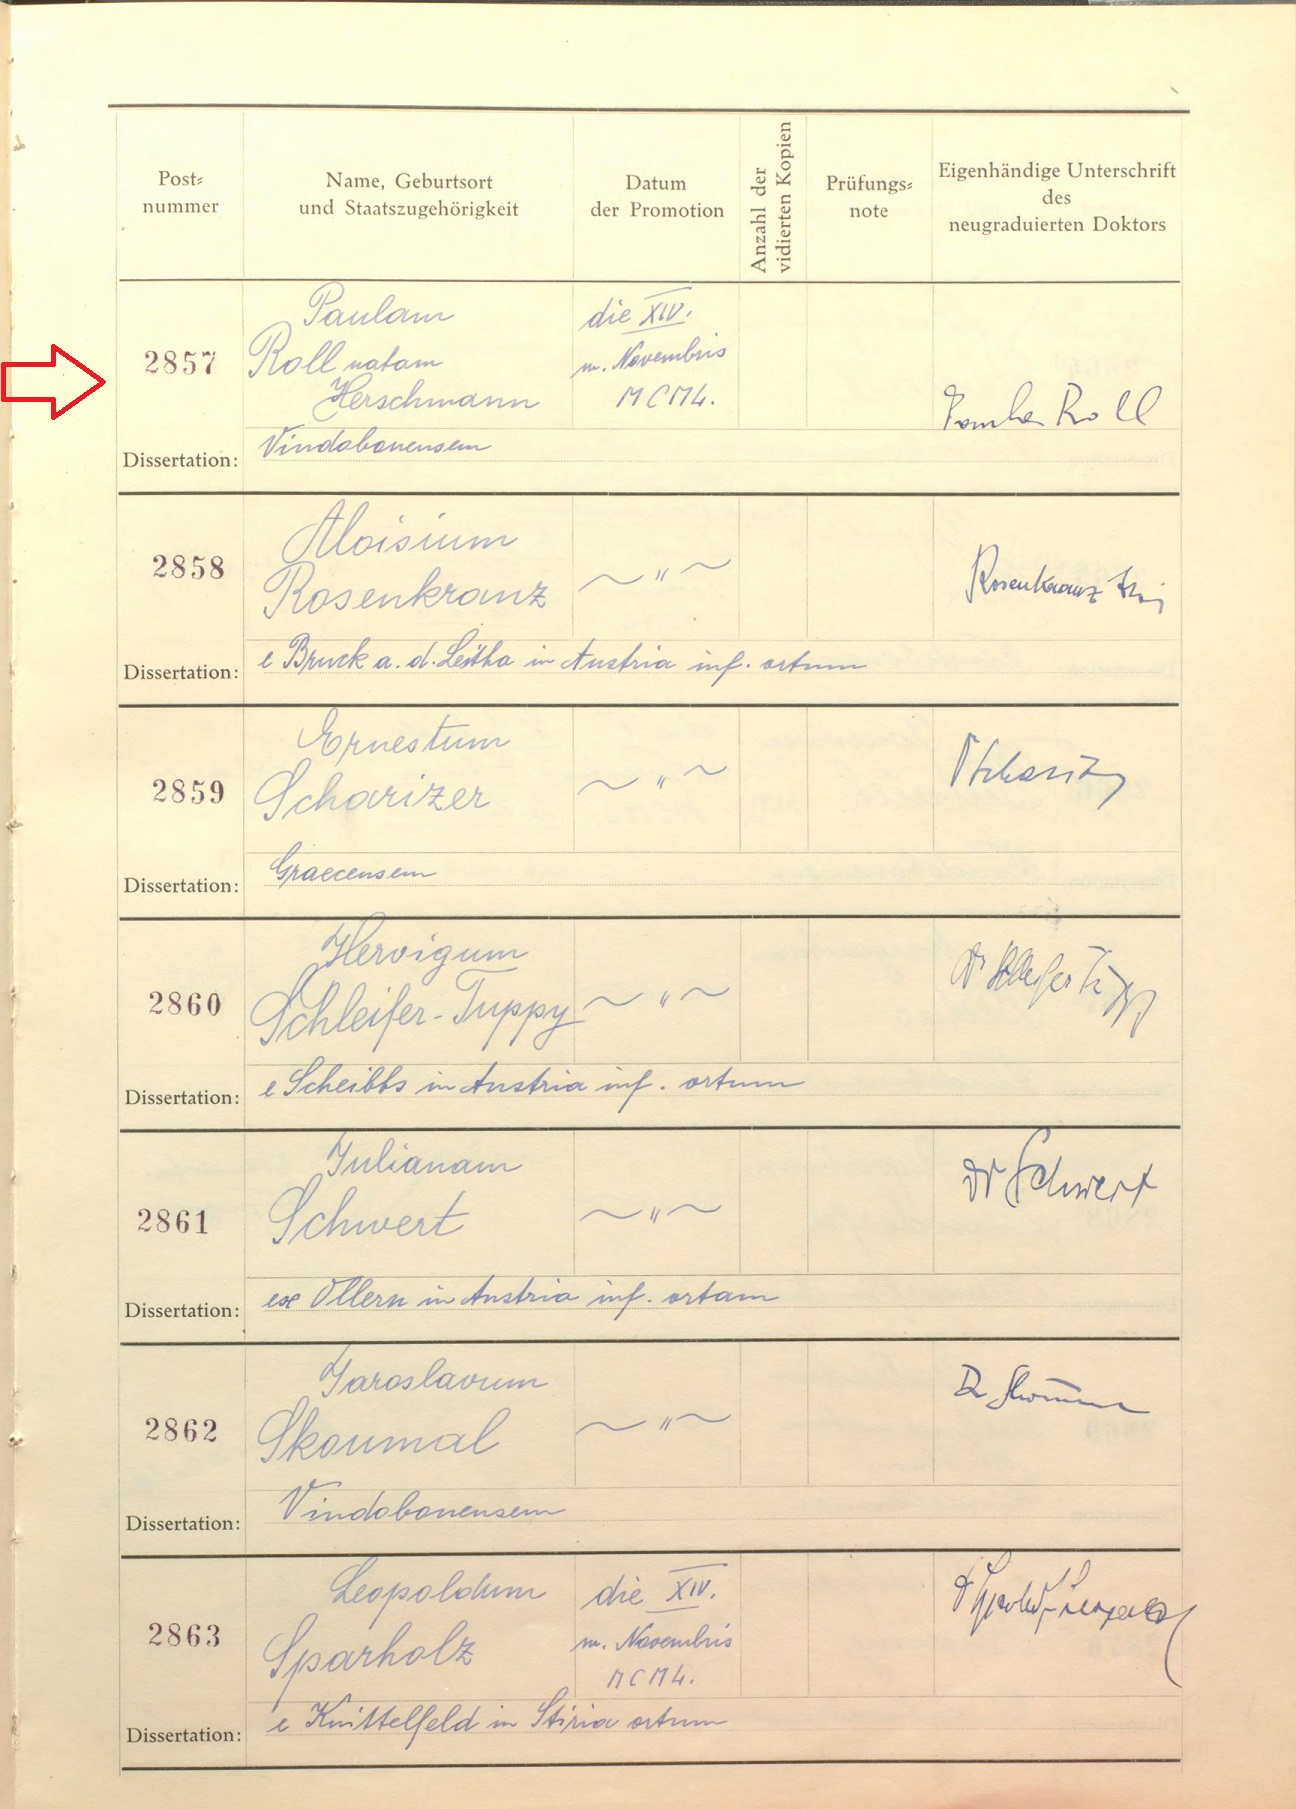 Post=
nummer
Name, Geburtsort
und Staatszugehörigkeit
Datum
der Promotion
Anzahl der
vidierten Kopien
Prüfungs=
note
Eigenhändige Unterschrift
des
neugraduierten Doktors
2857
Paulam
Roll natam
Herschmann
die XIV.
m. Novembris
MCML.
Roll
Dissertation: Vindobonensem
2858
Aloisium
Rosenkranz
~ " ~
Rosenkranz
Dissertation: e Bruck a. d. Leitha in Austria inf. ortum
2859
Ernestum
Scharizer
~ " ~
Dissertation: Graecensem
2860
Hervigum
Schleifer-Tuppy
~ " ~
Dr
Dissertation: e Scheibbs in Austria inf. ortum
2861
Julianam
Schwert
~ " ~
Dr Schwert
Dissertation: ex Ollern in Austria inf. ortam
2862
Jaroslavum
Skoumal
~ " ~
Dr
Dissertation: Vindobonensem
2863
Leopoldum
Sparholz
die XIV.
m. Novembris
MCML.
Dissertation: e Knittelfeld in Stiria ortum